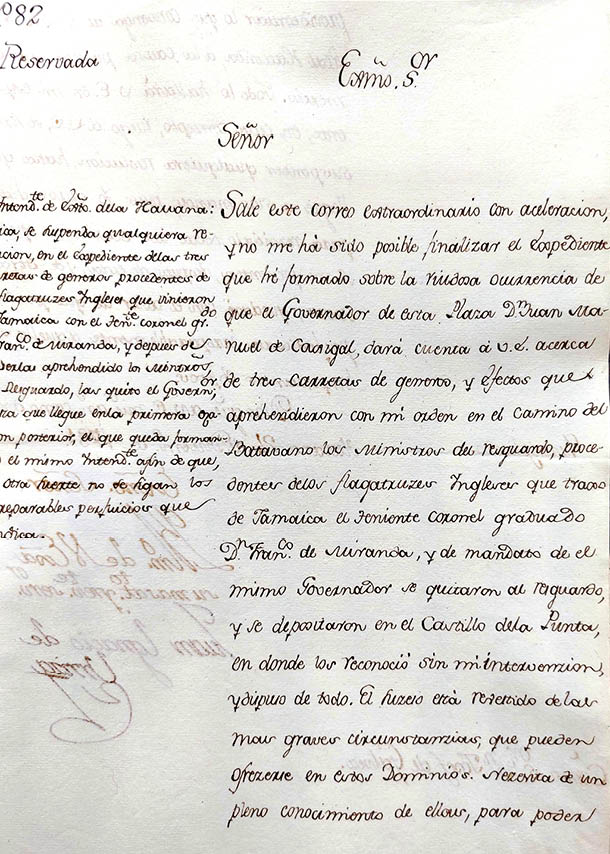 082
Reservada
Exmo. Sor
Señor
Intendte. de Exto. dela Havana:
ica, se suspenda qualquiera re-
cion, en el expediente delas tres
rretas de generos procedentes de
flagatruzes Ingleses que vinieron
Jamaica con el Tente. coronel grdo
Franco. de Miranda, y depues de
verlas aprehendido los Ministros,
Resguardo, las quito el Governor,
ra que llegue enla primera oca-
on posterior, el que queda forman-
o el mismo Intendte. afin de que,
otra suerte no se sigan los
reparables perjuicios que
ndica.
Sale este correo extraordinario con aceleracion,
y no me há sido posible finalizar el Expediente
que hé formado sobre la ruidosa ocurrencia de
que el Governador de esta Plaza Dn. Juan Ma-
nuel de Caxigal, dará cuenta á V.E. acerca
de tres carretas de generos, y efectos que
aprehendieron con mi orden en el Camino del
Batavano los Ministros del resguardo, proce-
dentes delos flagatruzes Ingleses que traxo
de Jamaica el Teniente coronel graduado
Dn. Franco. de Miranda, y de mandato de el
mismo Governador se quitaron al resguardo,
y se depositaron en el Castillo dela Punta,
en donde los reconoció sin mi intervenzion,
y dispuso de todo. El suzeso está revestido delas
mas graves circunstanzias, que pueden
ofrezerse en estos Dominios. Nezesita de un
pleno conocimiento de ellas, para poder